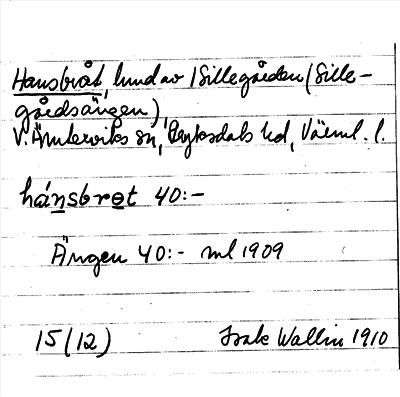 Hansbråt, hund av Sillegården (Sille-
gårdsängen)
V. Ämterviks sn, Fryksdals hd, Värml. l.
hánsbret 40:-
Ängen 40:- ml 1909
15 (12) Isak Wallin 1910